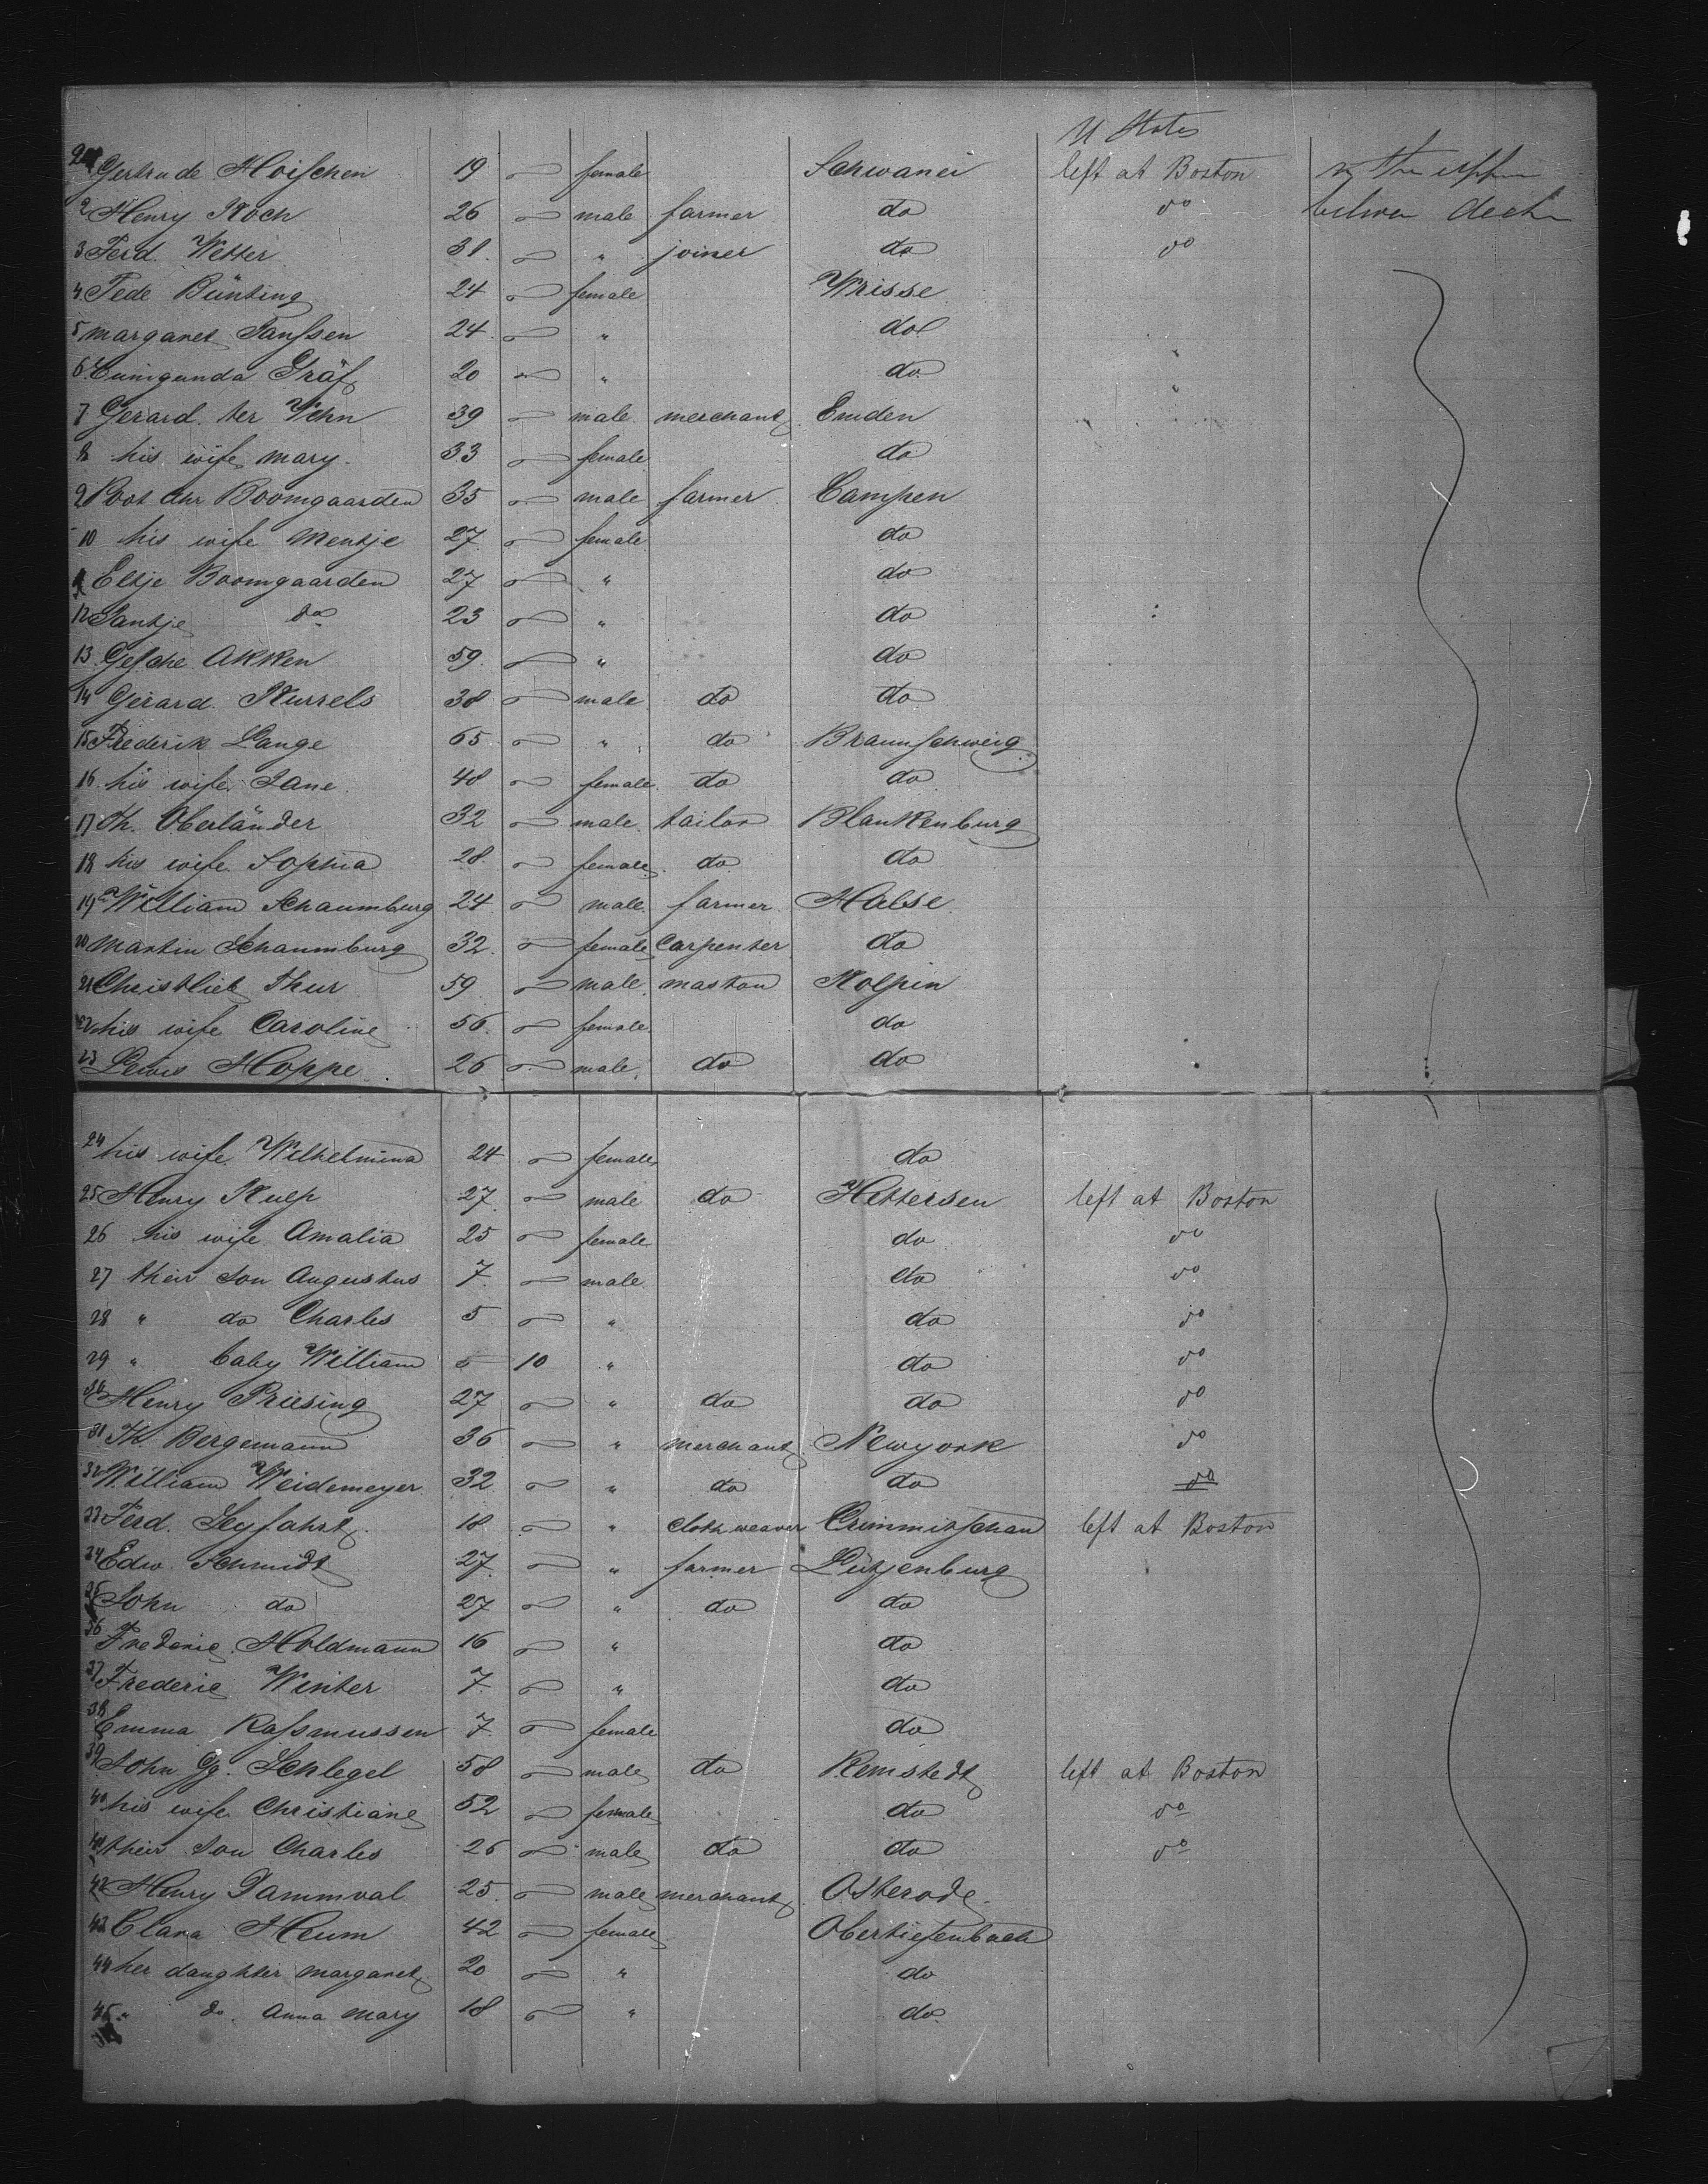 U States
201 Gertrude Hoischen 19 female Schwanei left at Boston in the upper
2 Henry Koch 26 male farmer do do between deck
3 Ferd. Wetter 31 " joiner do do
4 Tede Bünting 24 female Wrisse
5 Margaret Janssen 24 " do
6 Cunigunda Gräf 20 " do
7 Gerard ter Vehn 39 male merchant Emden
8 his wife Mary 33 female do
9 Boomgaarden 35 male farmer Campen
10 his wife Mentje 27 female do
Eltje Boomgaarden 27 " do
12 Jantje do 23 " do
13 Gesche Akken 59 " do
14 Gerard Kurrels 38 male do do
15 Frederik Lange 65 " do Braunschweig
16 his wife Jane 48 female do do
17 Th. Oberländer 32 male tailor Blankenburg
18 his wife Sophia 28 female do do
19 William Schaumburg 24 male farmer Halse
20 Martin Schaumburg 32 female Carpenter do
21 Christlieb Thur 59 male maston Kolpin
22 his wife Caroline 56 female do
23 Lewis Hoppe 26 male do do
24 his wife Wilhelmina 24 female do
25 Henry Kulp 27 male do Hettersen left at Boston
26 his wife Amalia 25 female do do
27 their son Augustus 7 male do do
28 " do Charles 5 " do do
29 " baby William 10 " do do
30 Henry Priesing 27 " do do do
31 Th. Bergemann 36 " merchant Newyork do
32 William Weidemeyer 32 " do do do
33 Ferd. Seyfahrt 18 " Cloth weaver Crimmitschau left at Boston
34 Edw. Schmidt 27 " farmer Lütjenburg
35 John do 27 " do do
36 Frederic Holdmann 16 " do
37 Frederic Winter 7 " do
38 Emma Rassmussen 7 female do
39 John Gg. Schlegel 58 male do Remstedt left at Boston
40 his wife Christiane 52 female do do
41 their son Charles 26 male do do do
42 Henry Dammval 25 male merchant Osterode
43 Clara Heum 42 female Obertiefenbach
44 her daughter Margaret 20 " do
45 " do. Anna Mary 18 " do